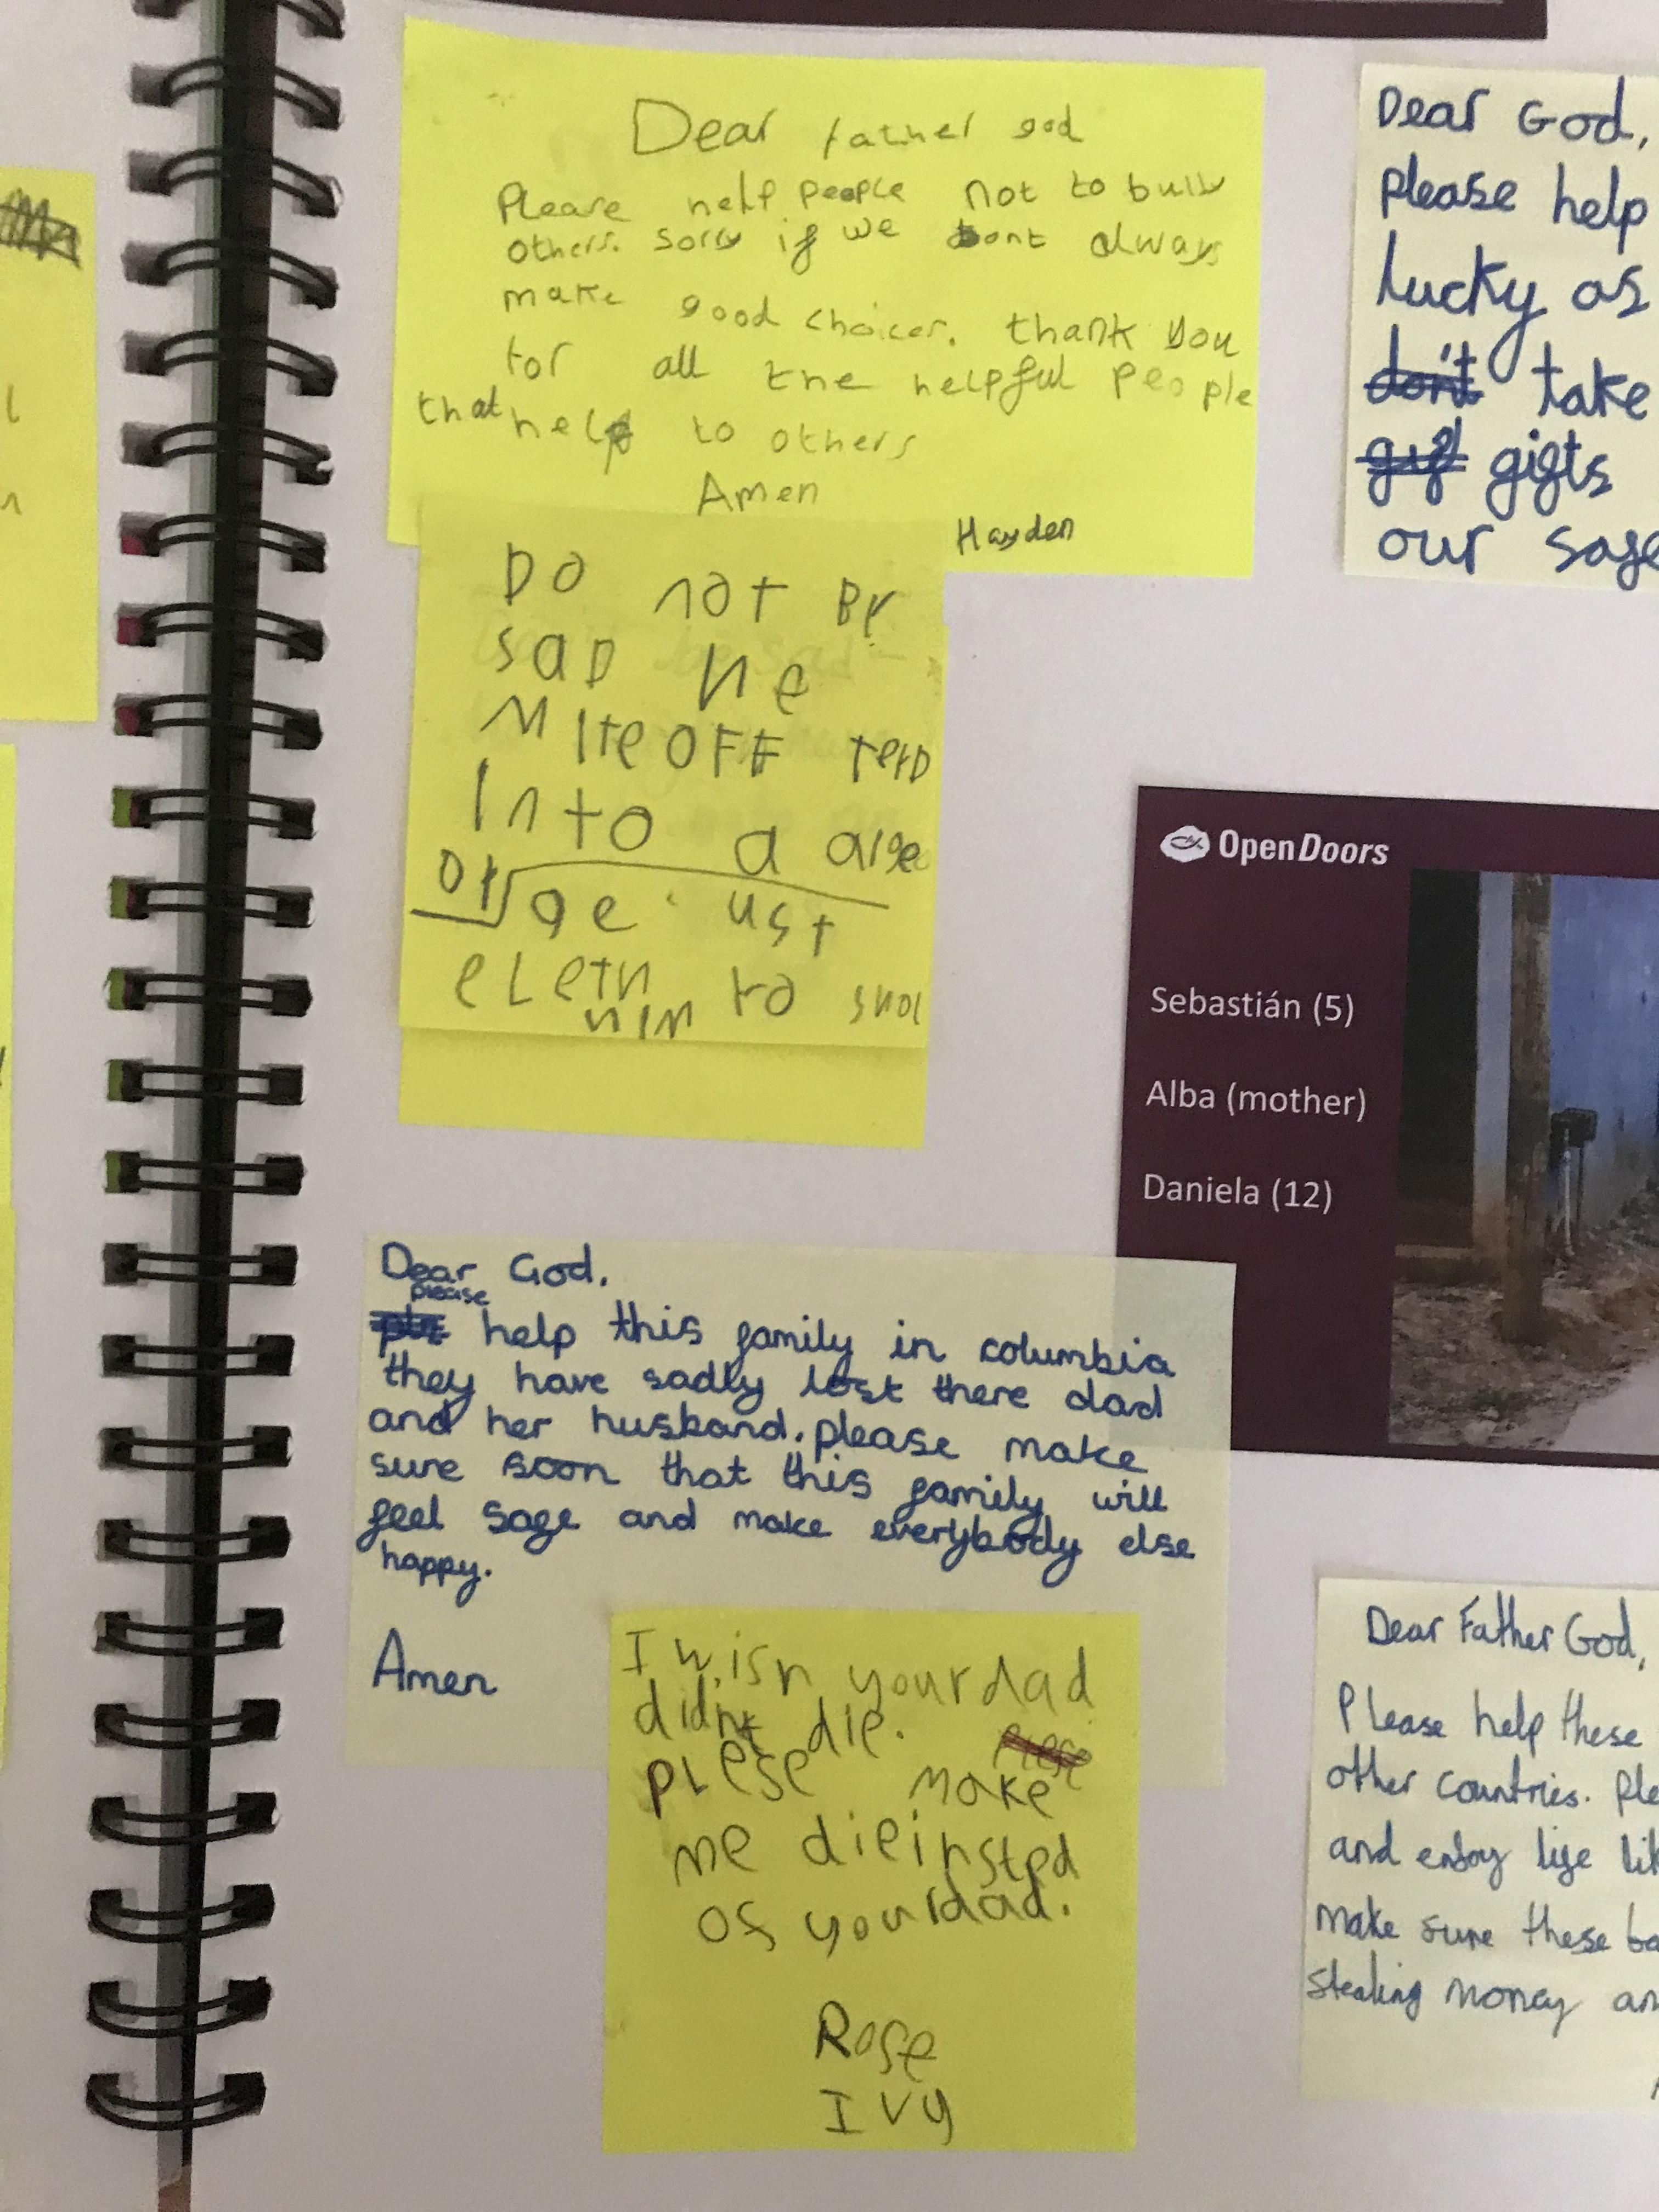 Dear father god
Please help people not to bully
others. sorry if we dont always
make good choices. thank you
for all the helpful people
that help to others
Amen
Hayden
Do not Be
saD He
MIteOFF
Into a
ge. ust
to
HIM
Dear God,
please help
lucky as
don't take
gif gifts
our safe
OpenDoors
Sebastián (5)
Alba (mother)
Daniela (12)
Dear God.
please
help this family in columbia
they have sadly lost there dad
and her husband. please make
sure soon that this family will
feel safe and make everybody else
happy.
Amen
I wish your dad
didnt die. plese
plese make
me die insted
of your dad.
Rose
Ivy
Dear Father God,
Please help these
other countries. Ple
and enjoy life lik
make sure these ba
stealing money an